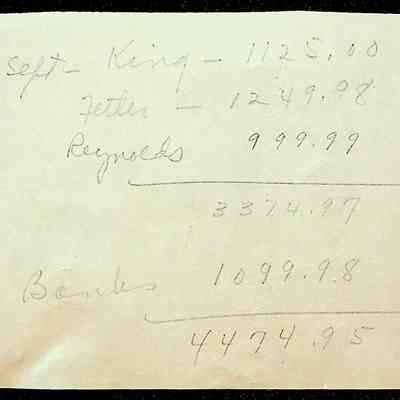 Sept - King - 1125.00
Fetter - 1249.98
Reynolds 999.99
3374.97
Banks 1099.98
4474.95